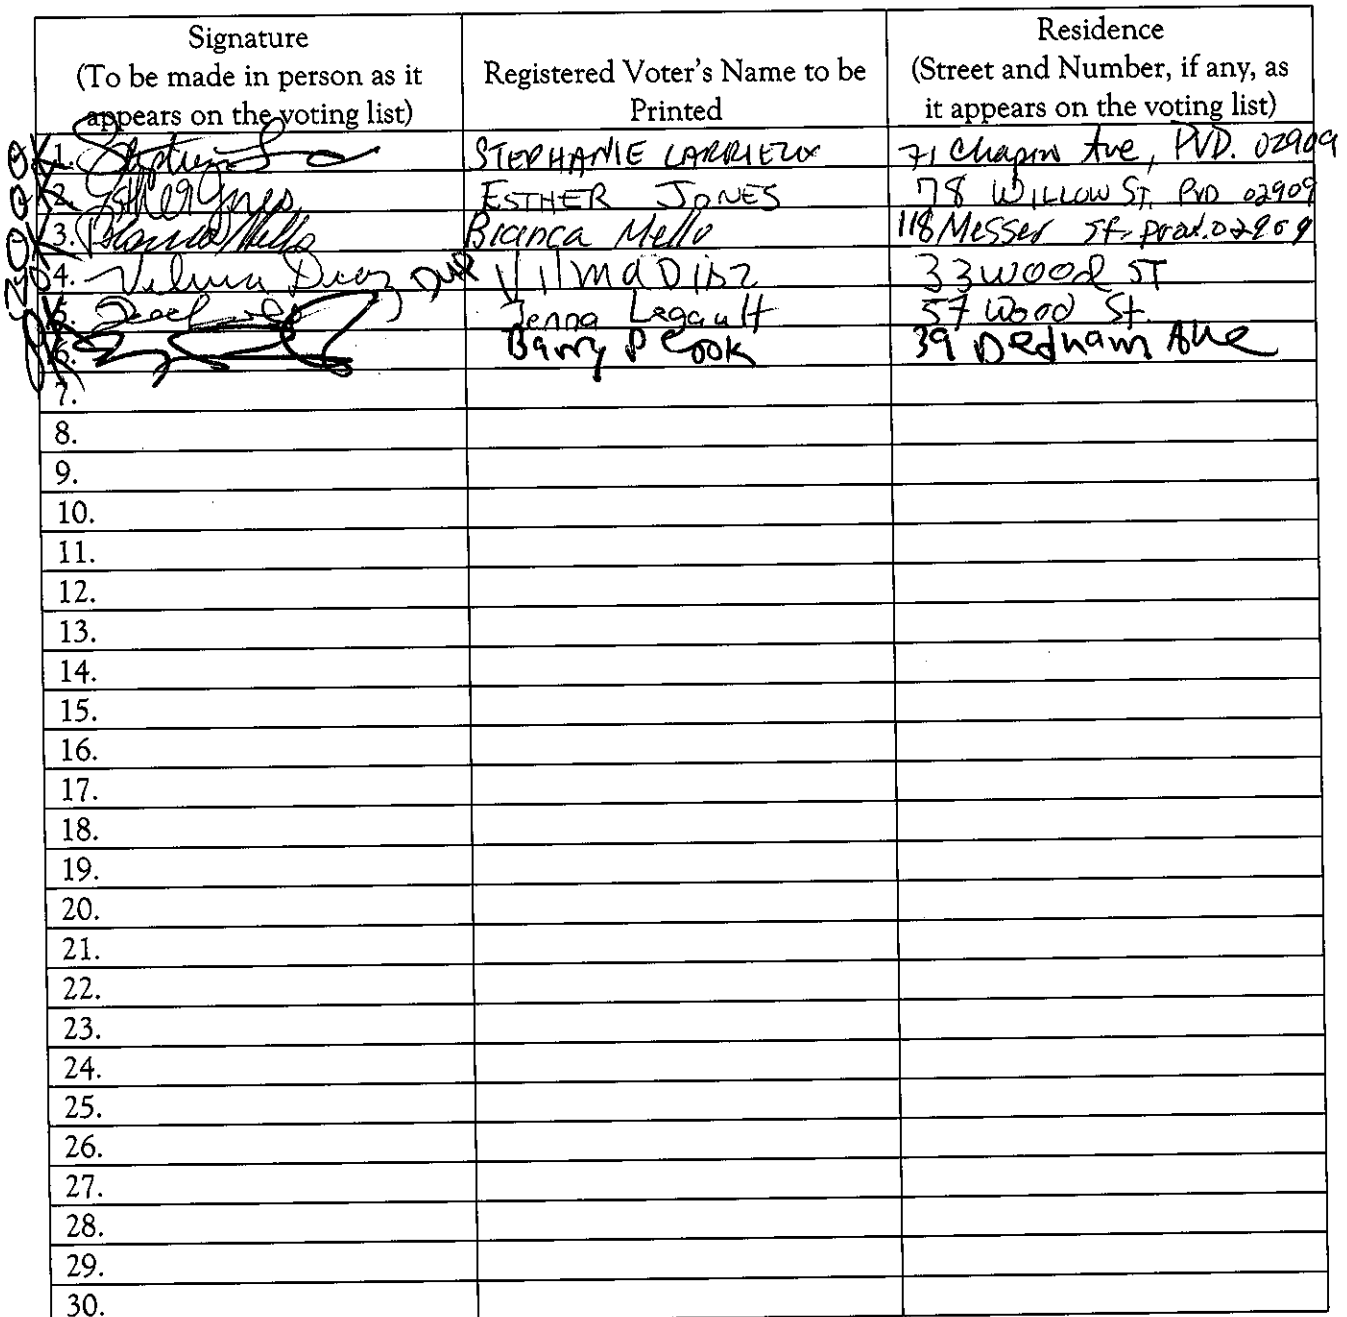 Signature
(To be made in person as it
appears on the voting list)
Registered Voter's Name to be
Printed
Residence
(Street and Number, if any, as
it appears on the voting list)
1. STEPHANIE LARRIEUX 71 Chapin Ave, PVD. 02909
2. Esther Jones ESTHER JONES 78 WILLOW ST. PVD 02909
3. Bianca Mello Bianca Mello 118 Messer St. prov. 02909
4. Vilma Diaz DUP Vilma Diaz 33 wood ST
5. Jenna Legault 57 Wood St.
6. Barry P Cook 39 Dedham Ave
7.
8.
9.
10.
11.
12.
13.
14.
15.
16.
17.
18.
19.
20.
21.
22.
23.
24.
25.
26.
27.
28.
29.
30.